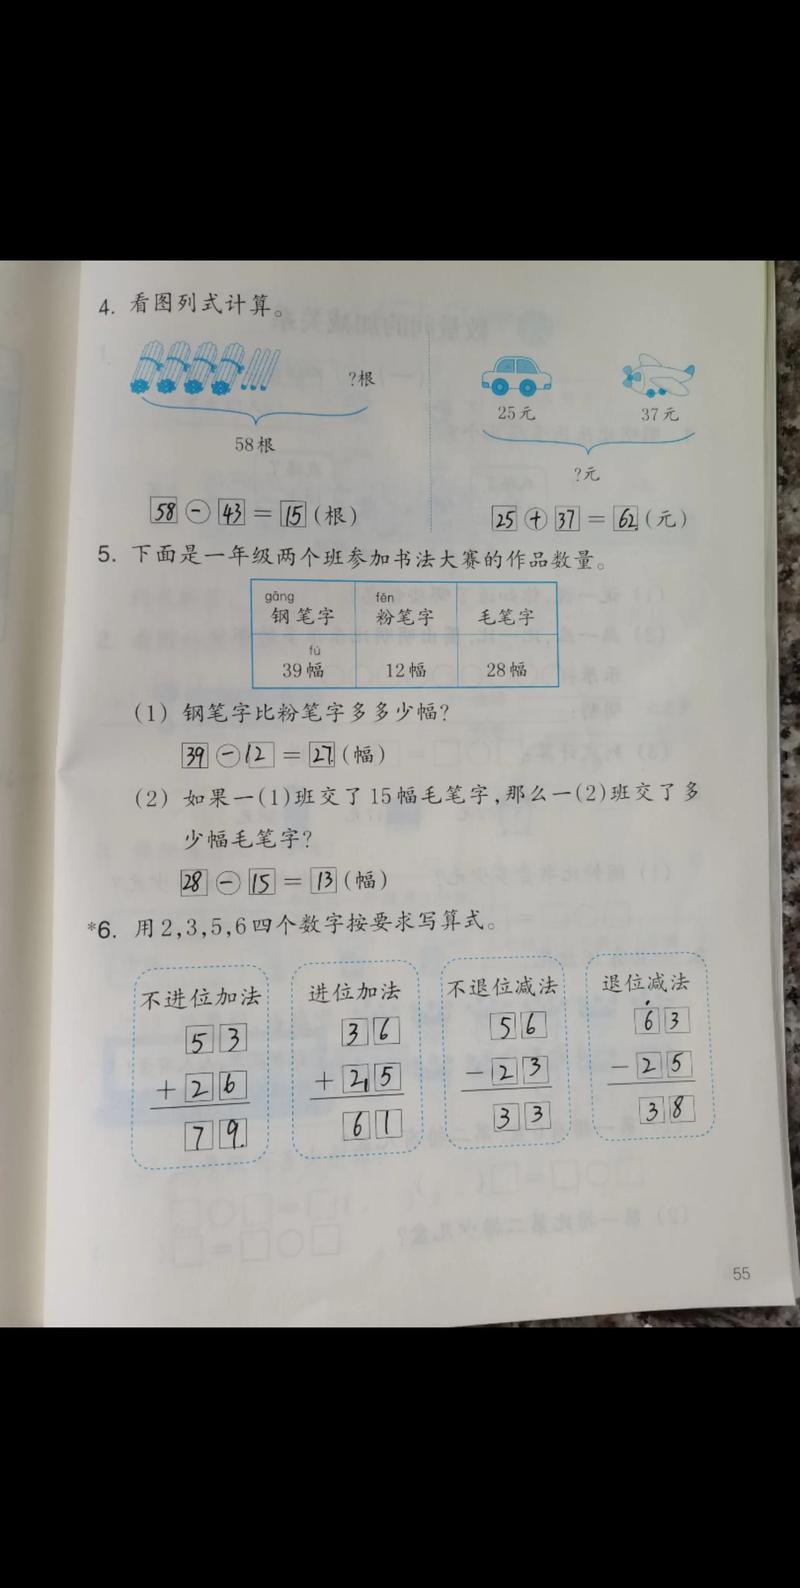 4. 看图列式计算。
?根
58根
25元 37元
?元
58 - 43 = 15 (根)
25 + 37 = 62 (元)
5. 下面是一年级两个班参加书法大赛的作品数量。
gāng fěn
钢笔字 粉笔字 毛笔字
fú
39幅 12幅 28幅
(1) 钢笔字比粉笔字多多少幅?
39 - 12 = 27 (幅)
(2) 如果一(1)班交了15幅毛笔字,那么一(2)班交了多
少幅毛笔字?
28 - 15 = 13 (幅)
*6. 用2,3,5,6四个数字按要求写算式。
不进位加法 进位加法 不退位减法 退位减法
53 36 56 63
+26 +25 -23 -25
79 61 33 38
55